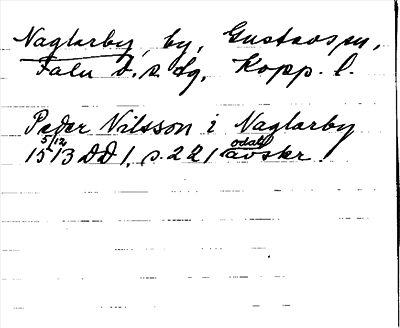 Naglarby, by, Gustavs sn,
Falu d. s. dg, Kopp. l.
Peder Nilsson i Naglarby
15 5/12 13 DD 1, s. 221 odat. avskr.